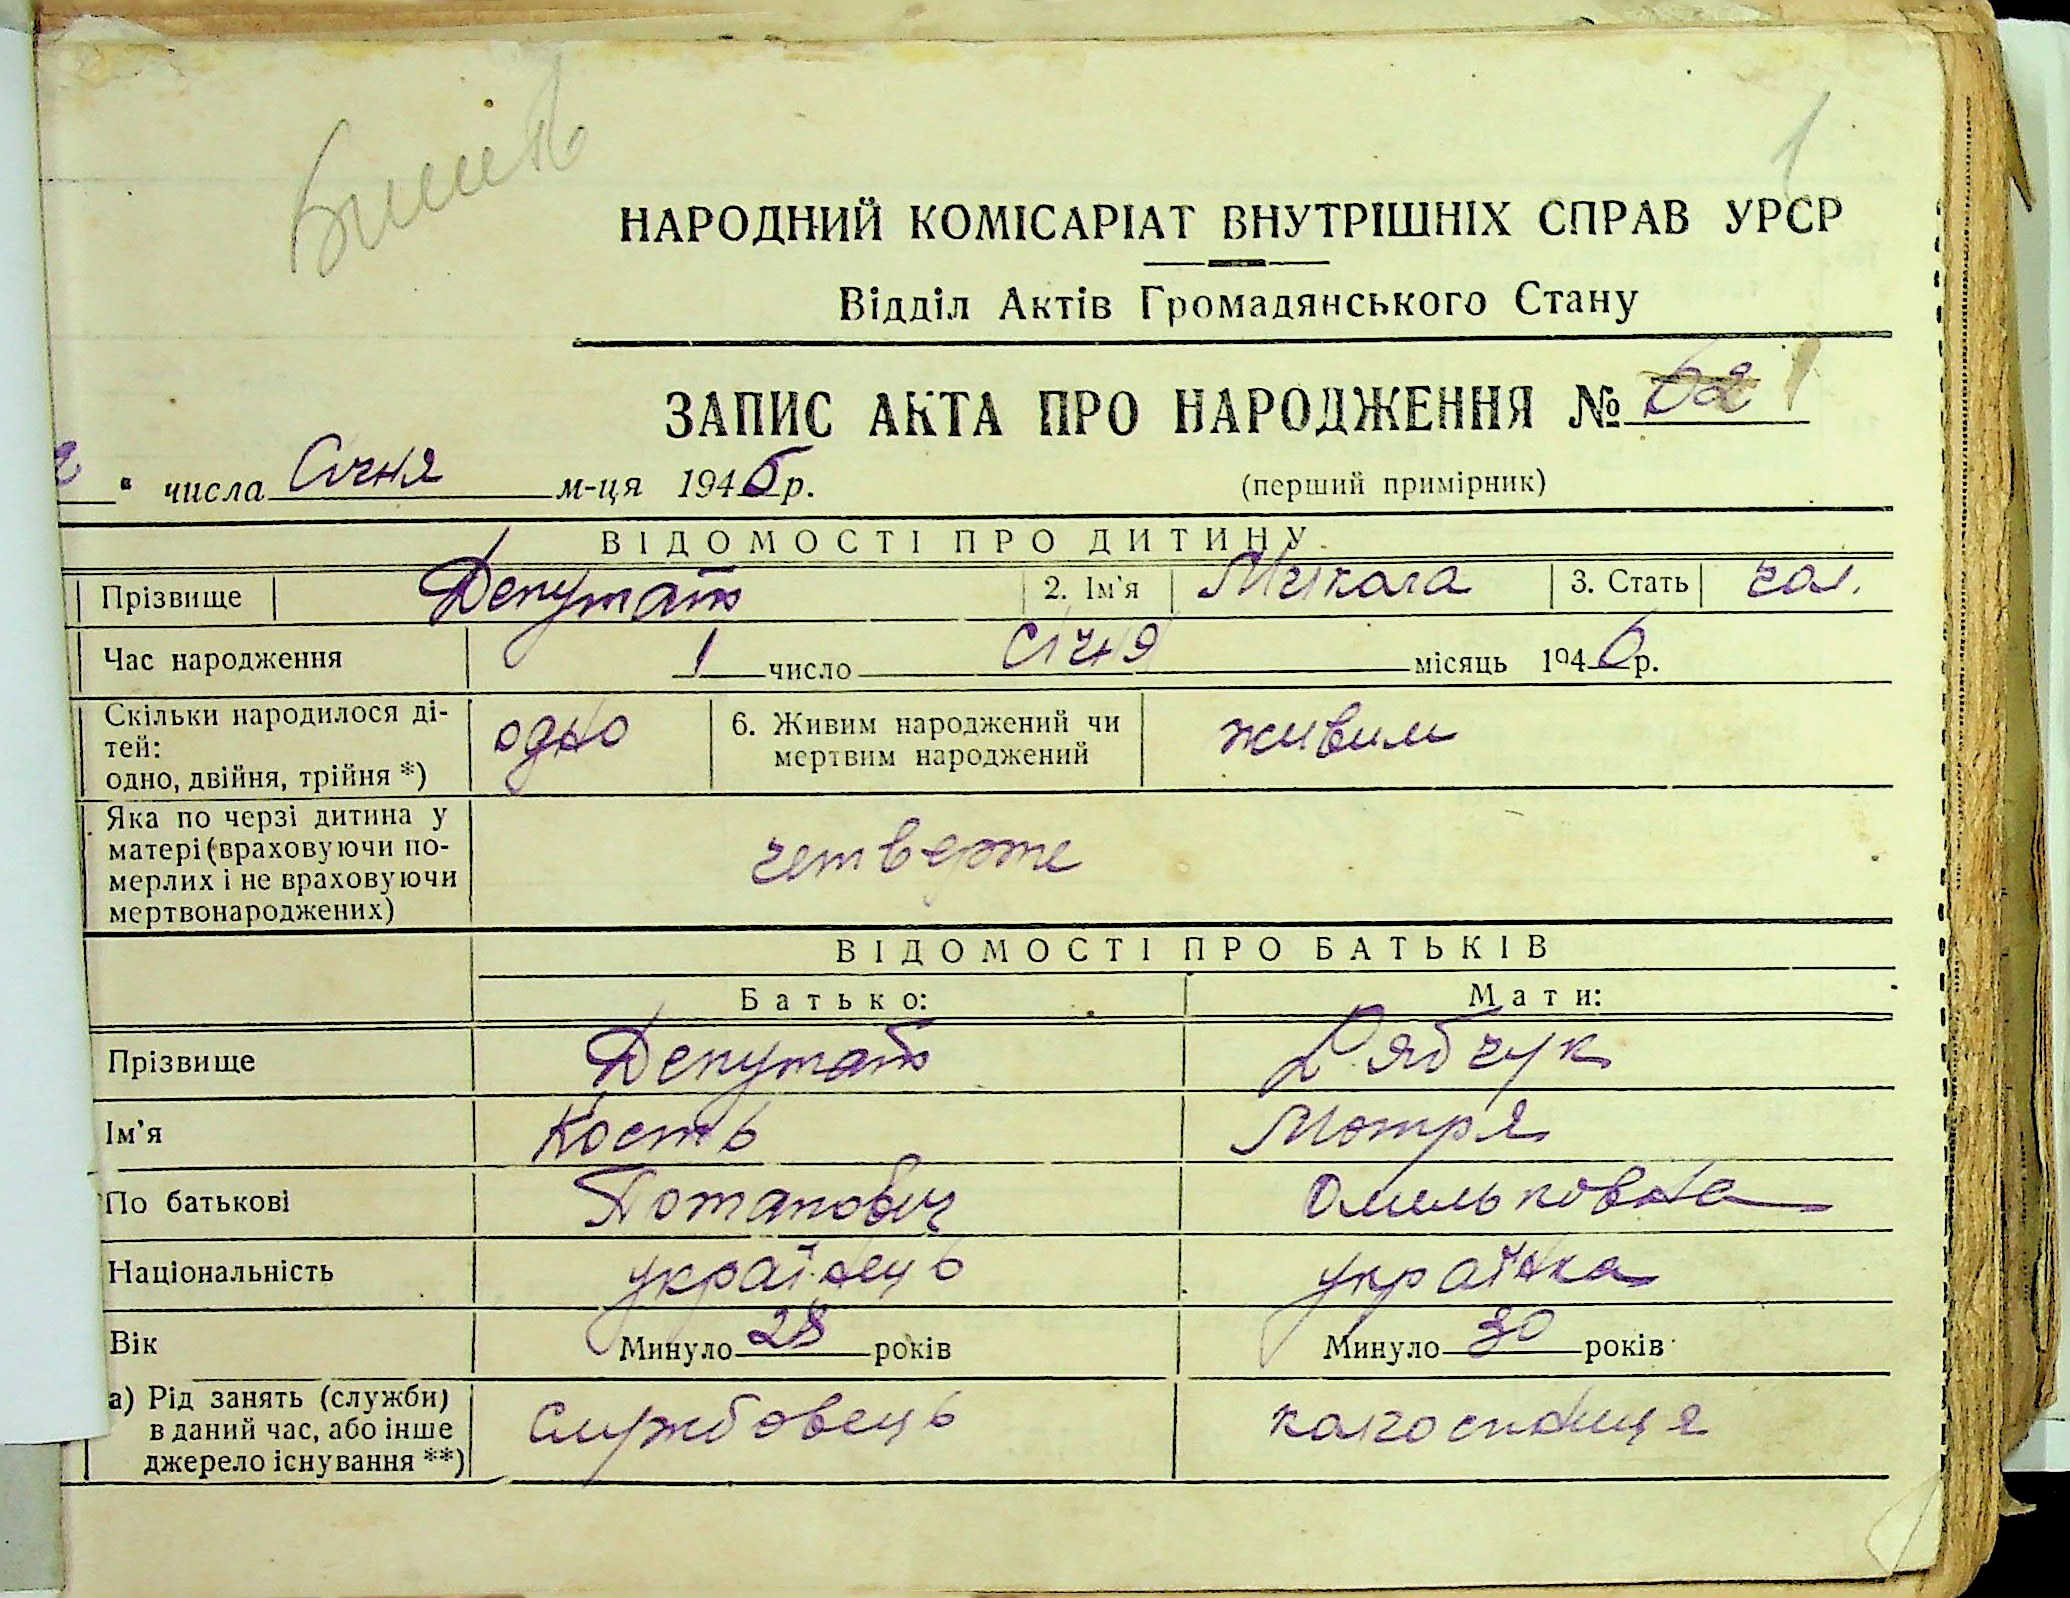 1
НАРОДНИЙ КОМІСАРІАТ ВНУТРІШНІХ СПРАВ УРСР
Відділ Актів Громадянського Стану
ЗАПИС АКТА ПРО НАРОДЖЕННЯ № 1
" числа Січня м-ця 1946 р. (перший примірник)
ВІДОМОСТІ ПРО ДИТИНУ
Прізвище Депутат 2. Ім'я Микола 3. Стать чол.
Час народження 1 число січня місяць 1946 р.
Скільки народилося ді-
тей:
одно, двійня, трійня *) одно 6. Живим народжений чи
мертвим народжений живим
Яка по черзі дитина у
матері (враховуючи по-
мерлих і не враховуючи
мертвонароджених) четверте
ВІДОМОСТІ ПРО БАТЬКІВ
Батько: Мати:
Прізвище Депутат Рябчук
Ім'я Кость Мотря
По батькові Потапович Омельковна
Національність українець українка
Вік Минуло 28 років Минуло 30 років
а) Рід занять (служби)
в даний час, або інше
джерело існування **) службовець колгоспниця